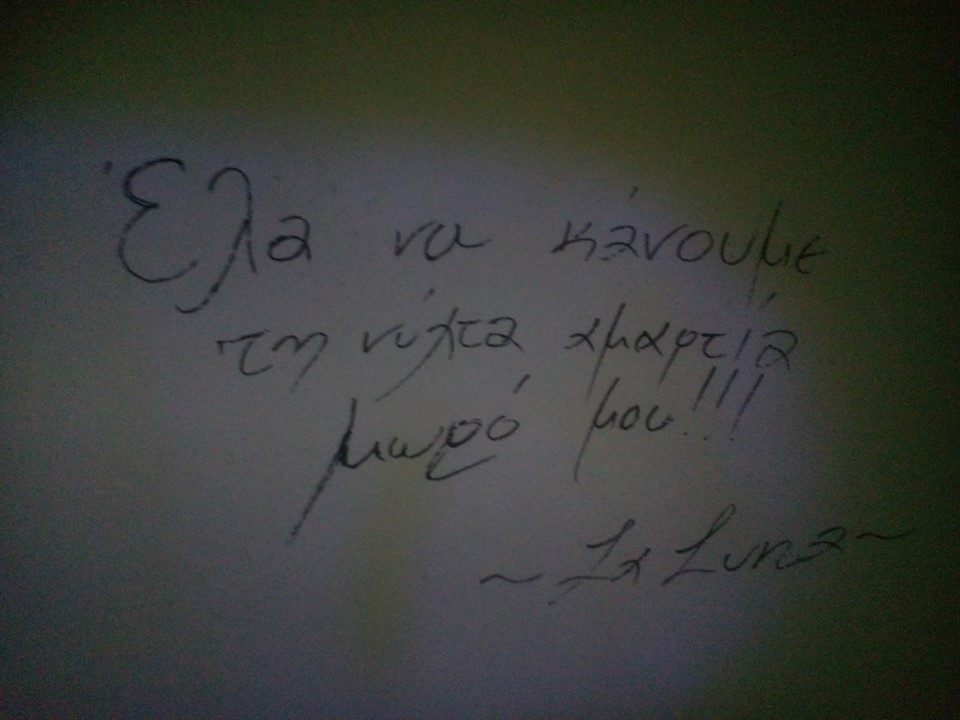 Έλα να κάνουμε
τη νύχτα αμαρτία
μωρό μου!!!
~ La Luna ~